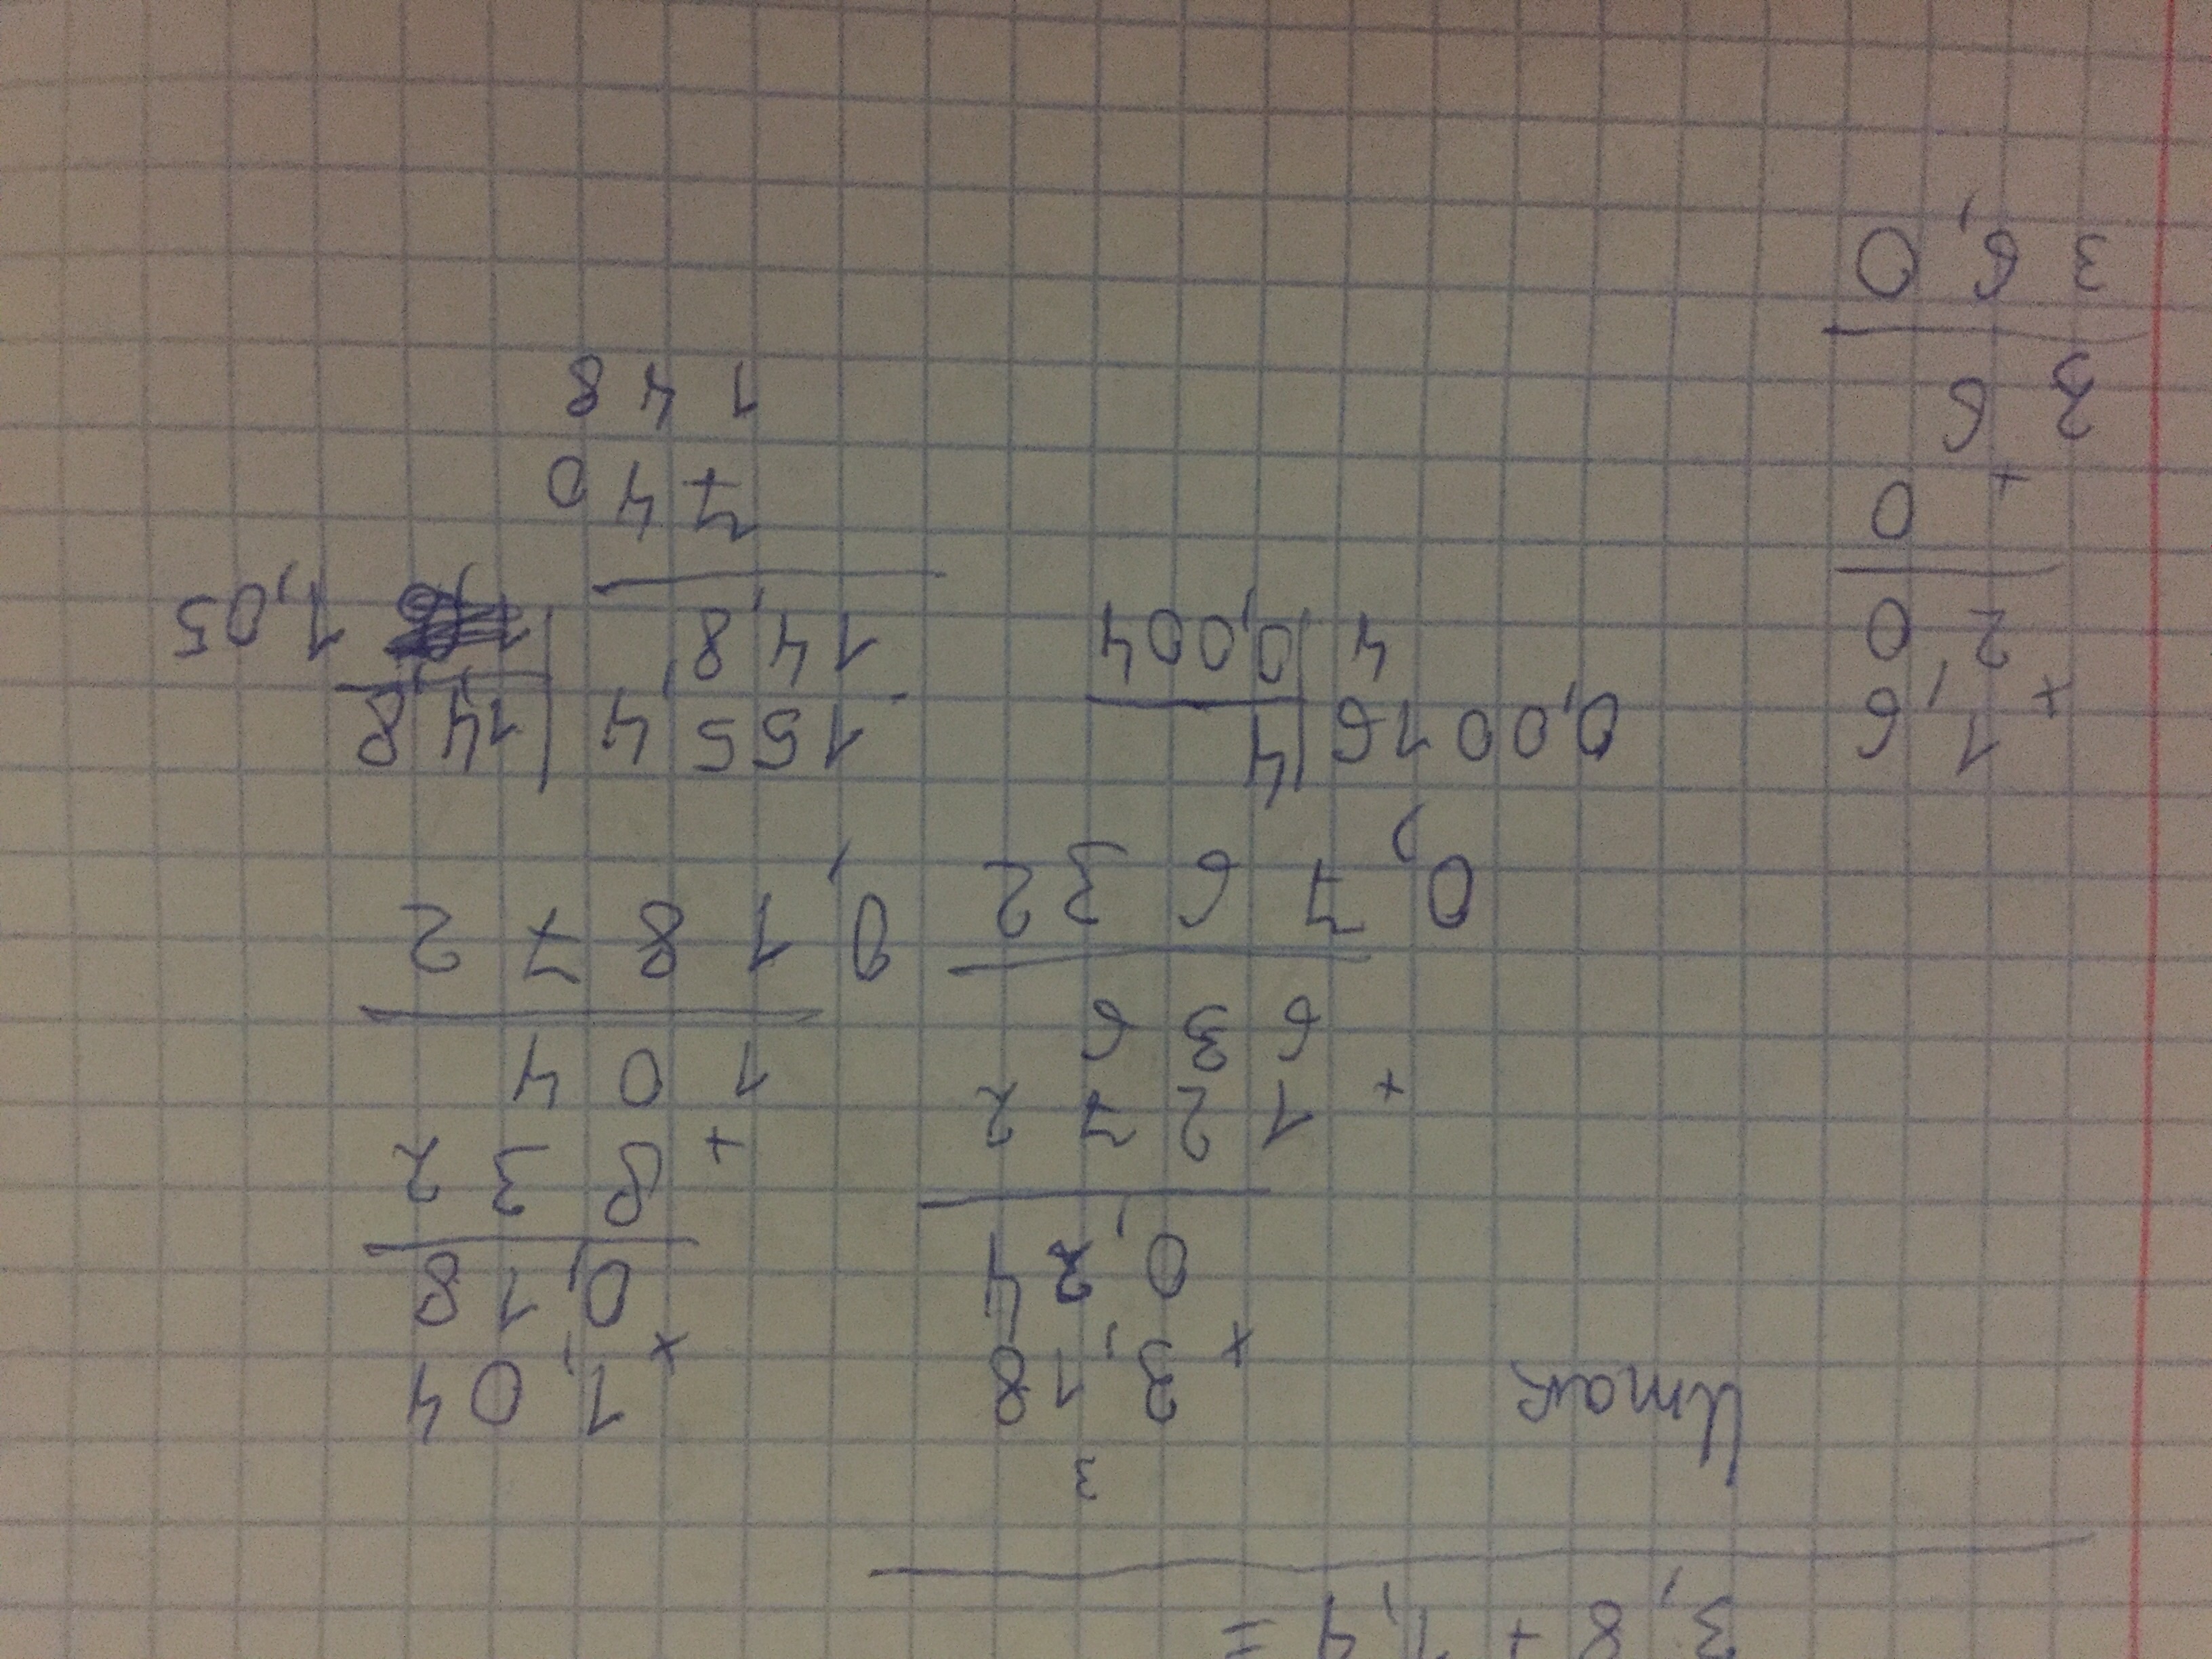 3,8 + 1,4 =
Итак
3
× 3,18
0,24
+ 1272
636
0,7632
× 1,04
0,18
+ 832
104
0,1872
× 1,6
2,0
0
+
36
36,0
0,0016 | 4
4 | 0,004
- 155,4 | 14,8
14,8 | 1,05
740
148